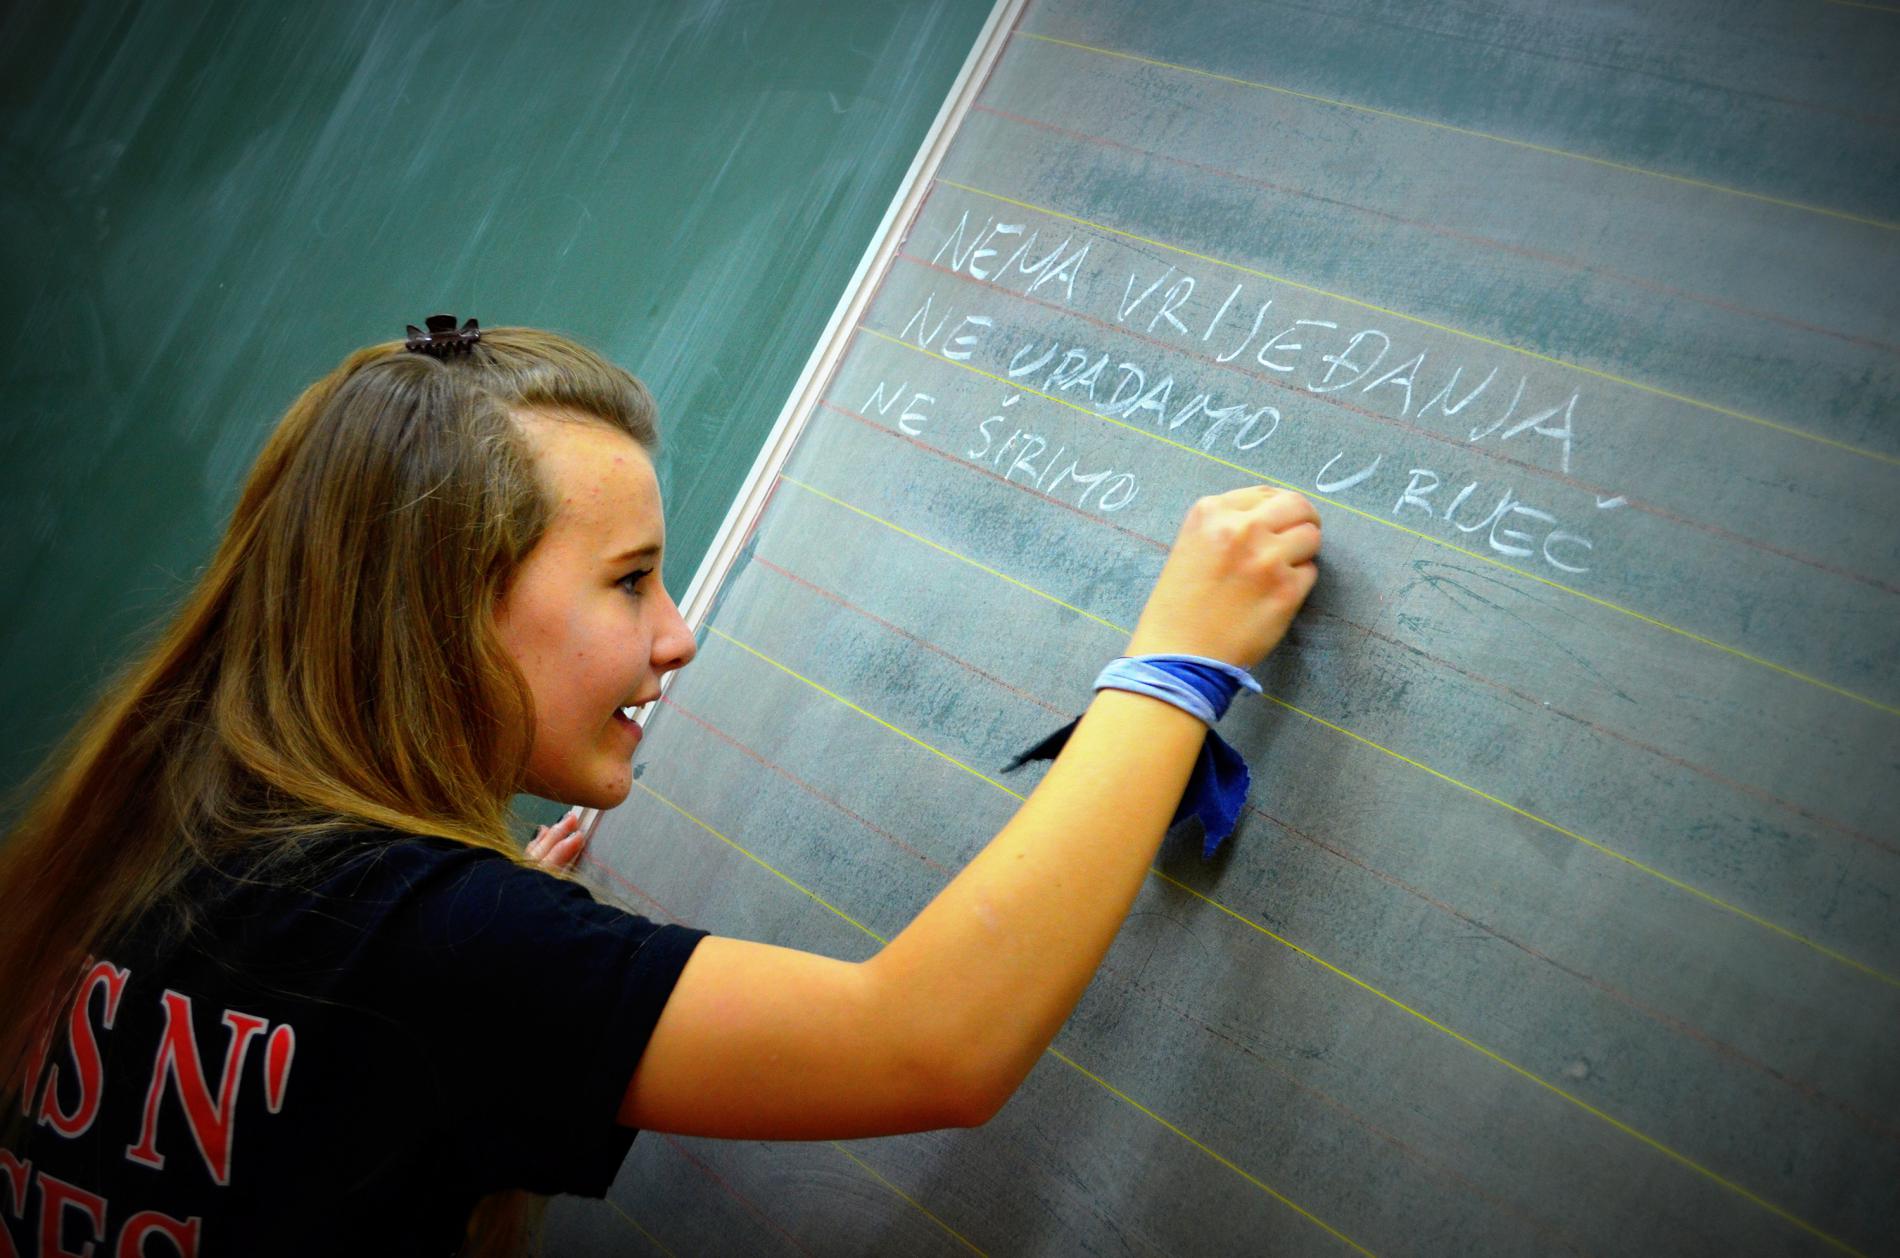 NEMA VRIJEĐANJA
NE UPADAMO U RIJEČ
NE ŠIRIMO
NS N'
SES